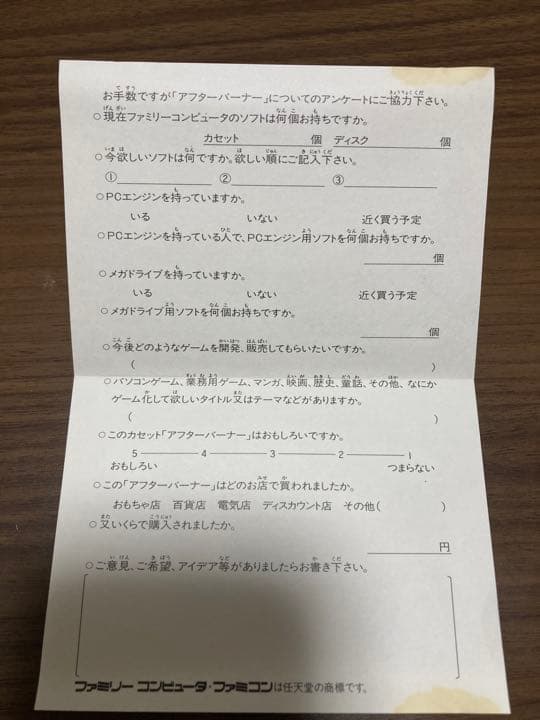 お手数ですが「アフターバーナー」についてのアンケートにご協力下さい。
○現在ファミリーコンピュータのソフトは何個お持ちですか。
カセット 個 ディスク 個
○今欲しいソフトは何ですか。欲しい順にご記入下さい。
① ② ③
○PCエンジンを持っていますか。
いる いない 近く買う予定
○PCエンジンを持っている人で、PCエンジン用ソフトを何個お持ちですか。
個
○メガドライブを持っていますか。
いる いない 近く買う予定
○メガドライブ用ソフトを何個お持ちですか。
個
○今後どのようなゲームを開発、販売してもらいたいですか。
( )
○パソコンゲーム、業務用ゲーム、マンガ、映画、歴史、童話、その他、なにか
ゲーム化して欲しいタイトル又はテーマなどがありますか。
( )
○このカセット「アフターバーナー」はおもしろいですか。
5 ─ 4 ─ 3 ─ 2 ─ 1
おもしろい つまらない
○この「アフターバーナー」はどのお店で買われましたか。
おもちゃ店 百貨店 電気店 ディスカウント店 その他( )
○又いくらで購入されましたか。
円
○ご意見、ご希望、アイデア等がありましたらお書き下さい。
ファミリーコンピュータ・ファミコンは任天堂の商標です。